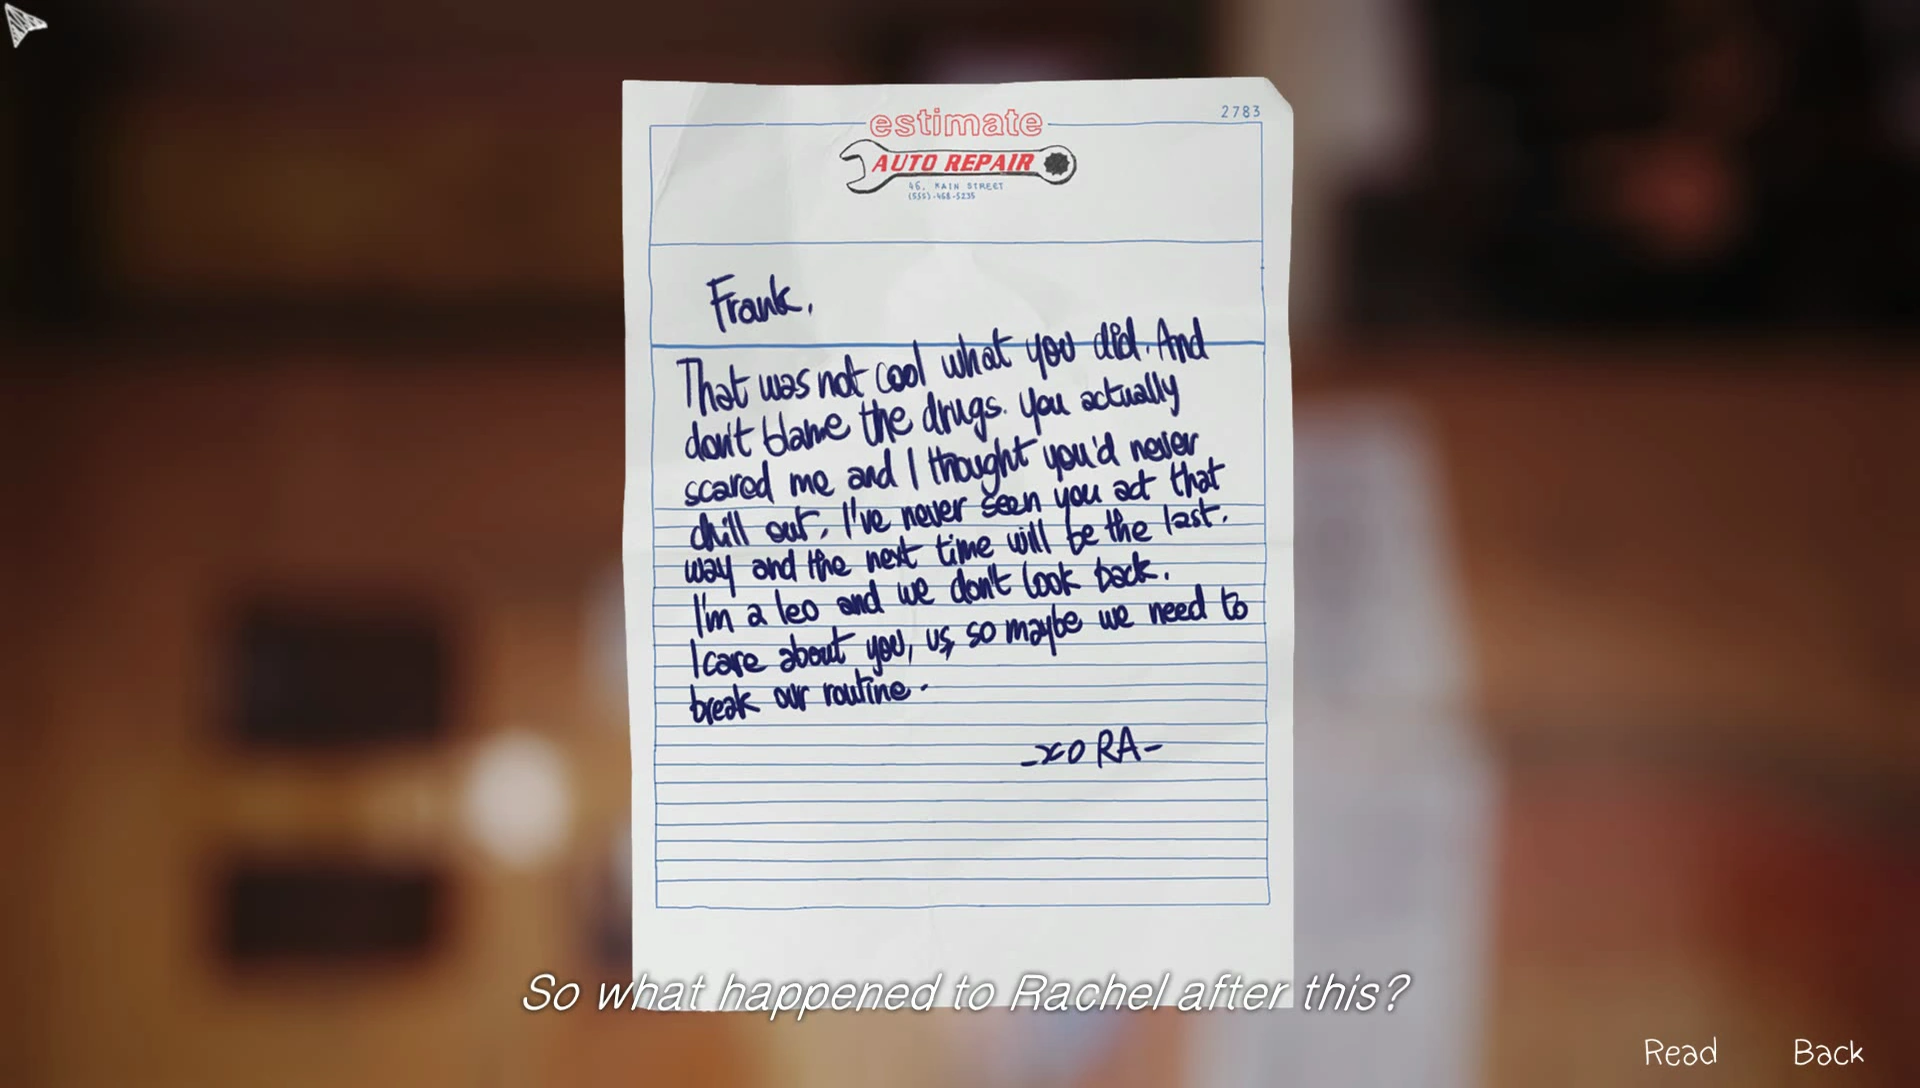 2783
estimate
AUTO REPAIR
46, MAIN STREET
(555)-468-5235
Frank,
That was not cool what you did. And
don't blame the drugs. You actually
scared me and I thought you'd never
chill out. I've never seen you act that
way and the next time will be the last.
I'm a leo and we don't look back.
I care about you, us, so maybe we need to
break our routine.
-xo RA-
So what happened to Rachel after this?
Read Back